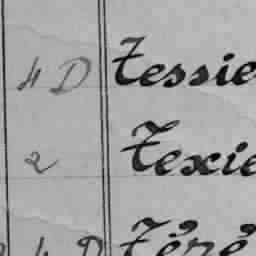 4 D Tessie
2 Texie
4 D Téré